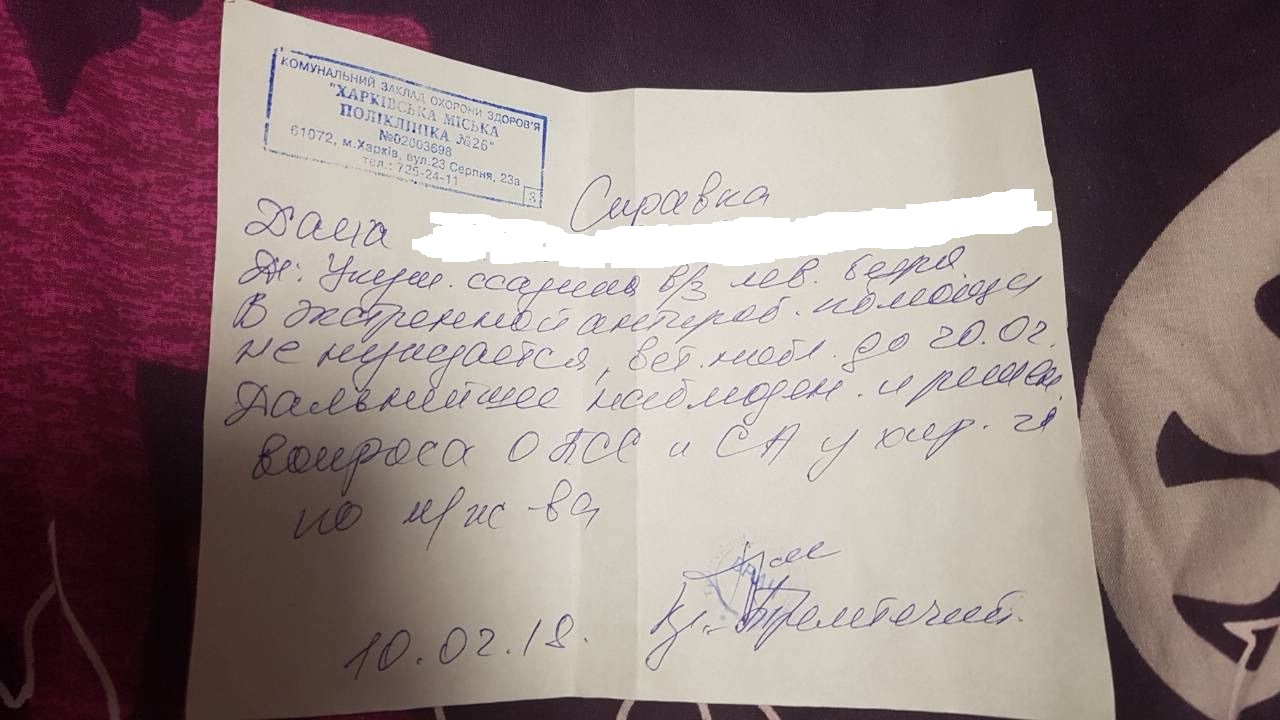 КОМУНАЛЬНИЙ ЗАКЛАД ОХОРОНИ ЗДОРОВ'Я
"ХАРКІВСЬКА МІСЬКА
ПОЛІКЛІНІКА №26"
№02003698
61072, м.Харків, вул.23 Серпня, 23а
тел.: 725-24-11
Справка
Дана
Дз: Укуш. ссадина в/з лев. бедра
В экстренной антираб. помощи
не нуждается, вет. набл. до 20.02.
Дальнейшее наблюден. и решен.
вопроса о ПСС и СА у хир. га
по м/ж-ва
10.02.18.